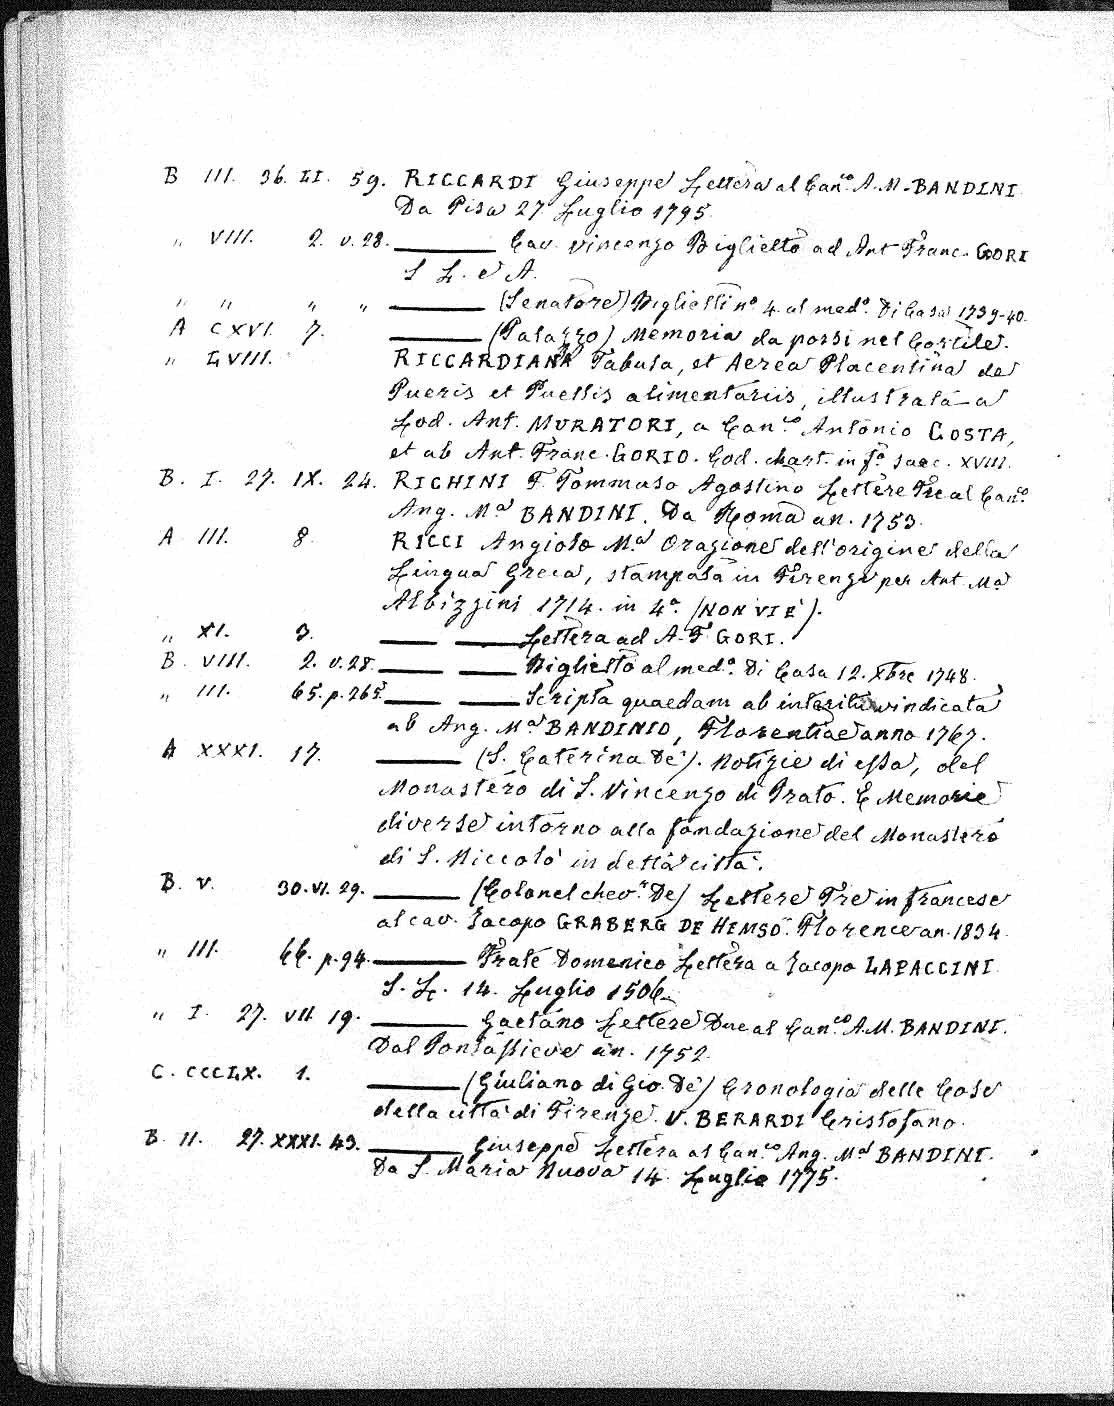 B III. 36. LI. 59. RICCARDI Giuseppe Lettera al Can.co A. M. BANDINI
Da Pisa 27 Luglio 1795.
„ VIII. 2. v. 28. ——— Cav. Vincenzo Biglietto ad Ant Franc. GORI
S L. e A.
„ „ „ „ ——— (Senatore) Biglietti n.o 4. al med.o Di Casa 1739-40.
A CXVI. 7. ——— (Palazzo) Memoria da porsi nel Cortile.
„ LVIII. RICCARDIANA Tabula, et Aerea Placentina de
Pueris et Puellis alimentariis, illustrata a
Lod. Ant. MURATORI, a Can.co Antonio COSTA,
et ab Ant. Franc. GORIO. Cod. chart. in f.o saec. XVIII.
B. I. 27. IX. 24. RICHINI F. Tommaso Agostino Lettere Tre al Can.co
Ang. M.a BANDINI. Da Roma an. 1753.
A III. 8. RICCI Angiolo M.a Orazione dell'origine della
Lingua Greca, stampata in Firenze per Ant. M.a
Albizzini 1714. in 4.o (NON VI È).
„ XI. 3. ——— ——— Lettera ad A. F. GORI.
B. VIII. 2. v. 28. ——— ——— Biglietto al med.o Di Casa 12. Xbre 1748.
„ III. 65. p. 265. ——— ——— Scripta quaedam ab interitu vindicata
ab Ang. M.a BANDINIO, Florentiae anno 1767.
A XXXI. 17. ——— (S. Caterina De'). Notizie di essa, del
Monastero di S. Vincenzo di Prato. E Memorie
diverse intorno alla fondazione del Monastero
di S. Niccolò in detta città.
B. V. 30. VI. 29. ——— (Colonel chev.r De) Lettere Tre in francese
al cav. Jacopo GRABERG DE HEMSÖ. Florence an. 1834.
„ III. 66. p. 94. ——— Frate Domenico Lettera a Jacopo LAPACCINI
S. L. 14. Luglio 1506.
„ I. 27. VII. 19. ——— Gaetano Lettere Due al Can.co A. M. BANDINI.
Dal Pontassieve an. 1752.
C. CCCLX. 1. ——— (Giuliano di Gio. De') Cronologia delle Cose
della città di Firenze. V. BERARDI Cristofano.
B. II. 27. XXXI. 43. ——— Giuseppe Lettera al Can.co Ang. M.a BANDINI.
Da S. Maria Nuova 14. Luglio 1775.